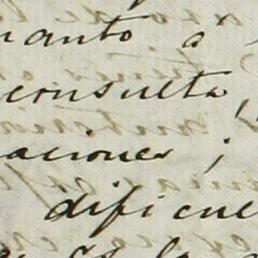 uanto a
consulta,
aciones;
dificul